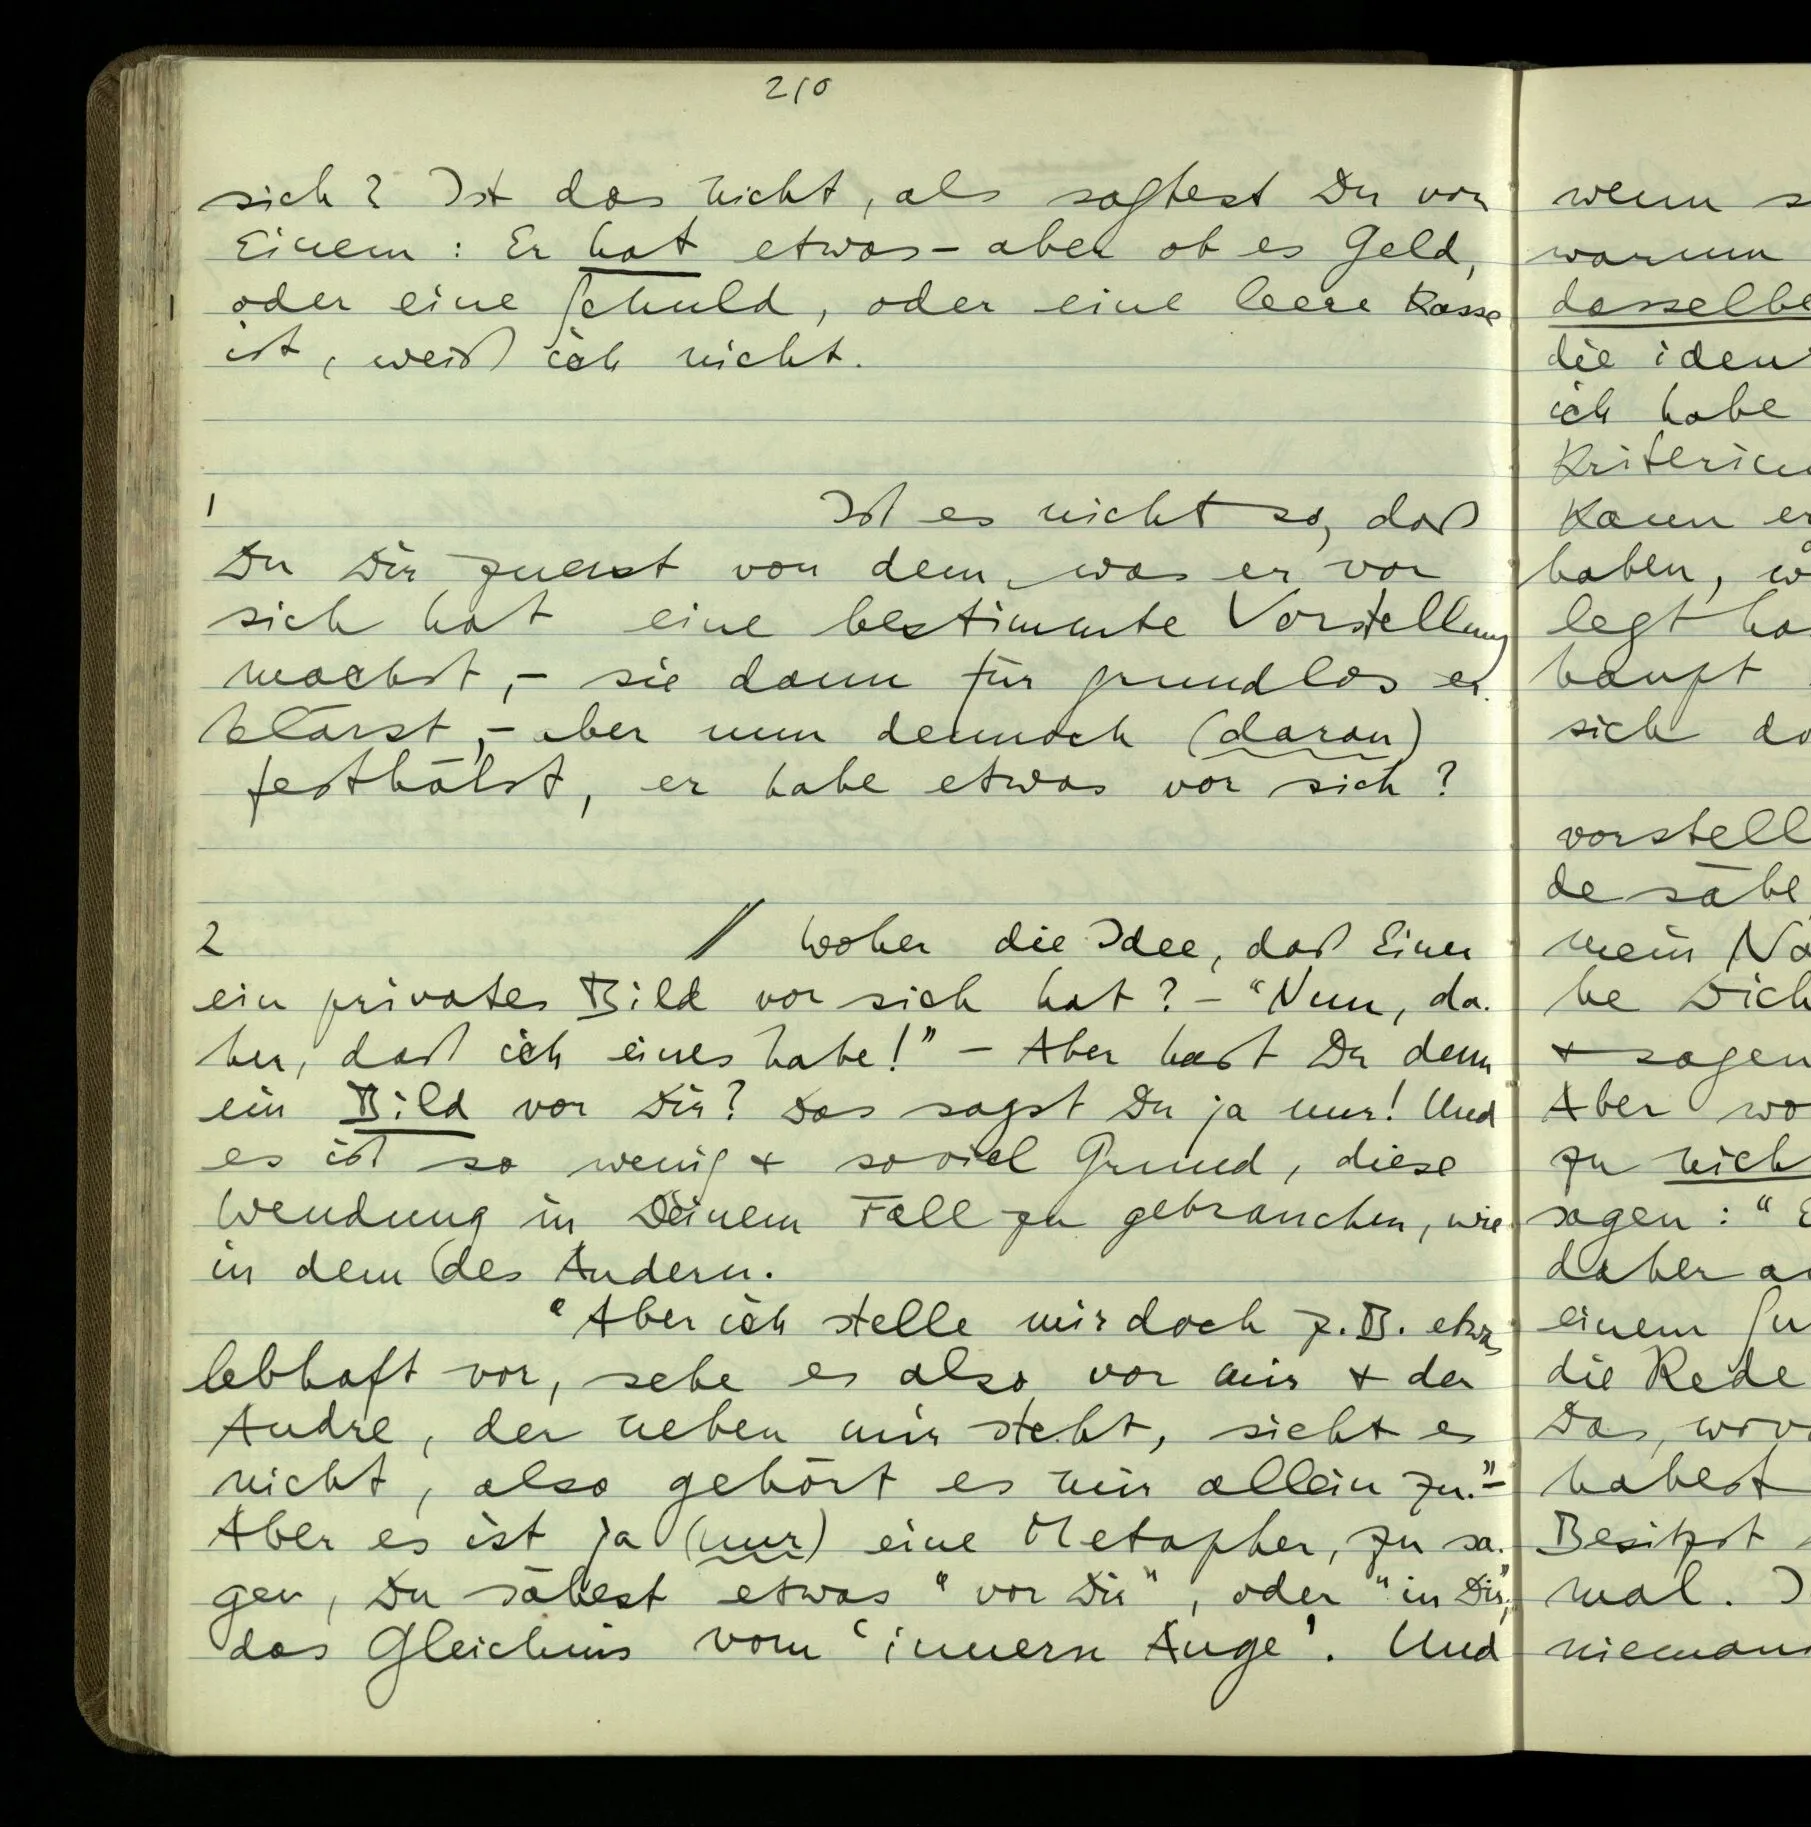 210
sich? Ist das nicht, als sagtest Du von
Einem: Er hat etwas – aber ob es Geld,
oder eine Schuld, oder eine leere Kasse
ist, weiß ich nicht.
1 Ist es nicht so, daß
Du Dir zuerst von dem, was er vor
sich hat eine bestimmte Vorstellung
machst, – sie dann für grundlos er-
klärst, – aber nun dennoch (daran)
festhälst, er habe etwas vor sich?
2 // Woher die Idee, daß Einer
ein privates Bild vor sich hat? – “Nun, da-
her, daß ich eines habe!” – Aber hast Du denn
ein Bild vor Dir? Das sagst Du ja nur! Und
es ist so wenig & soviel Grund, diese
Wendung in Deinem Fall zu gebrauchen, wie
in dem des Andern.
“Aber ich stelle mir doch z.B. etwas
lebhaft vor, sehe es also vor mir & der
Andre, der neben mir steht, sieht es
nicht, also gehört es mir allein zu.” –
Aber es ist ja (nur) eine Metapher, zu sa-
gen, Du sähest etwas “vor Dir”, oder “in Dir”;
das Gleichnis vom ‘innern Auge’. Und
wenn
warum
dasselbe
die
ich habe
Kann
haben,
legt
sich
vorstell
de
mein
be Dich
& sagen
Aber
zu
sagen: “
daher
einem
die Rede
Das,
habest
Besitzt
mal.